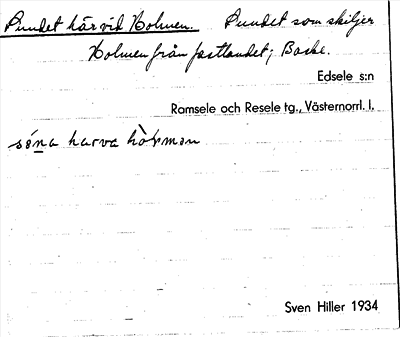 Sundet här vid Holmen. Sundet som skiljer
Holmen från fastlandet; Backe.
Edsele s:n
Ramsele och Resele tg., Västernorrl. l.
sóna harva hòlmən
Sven Hiller 1934